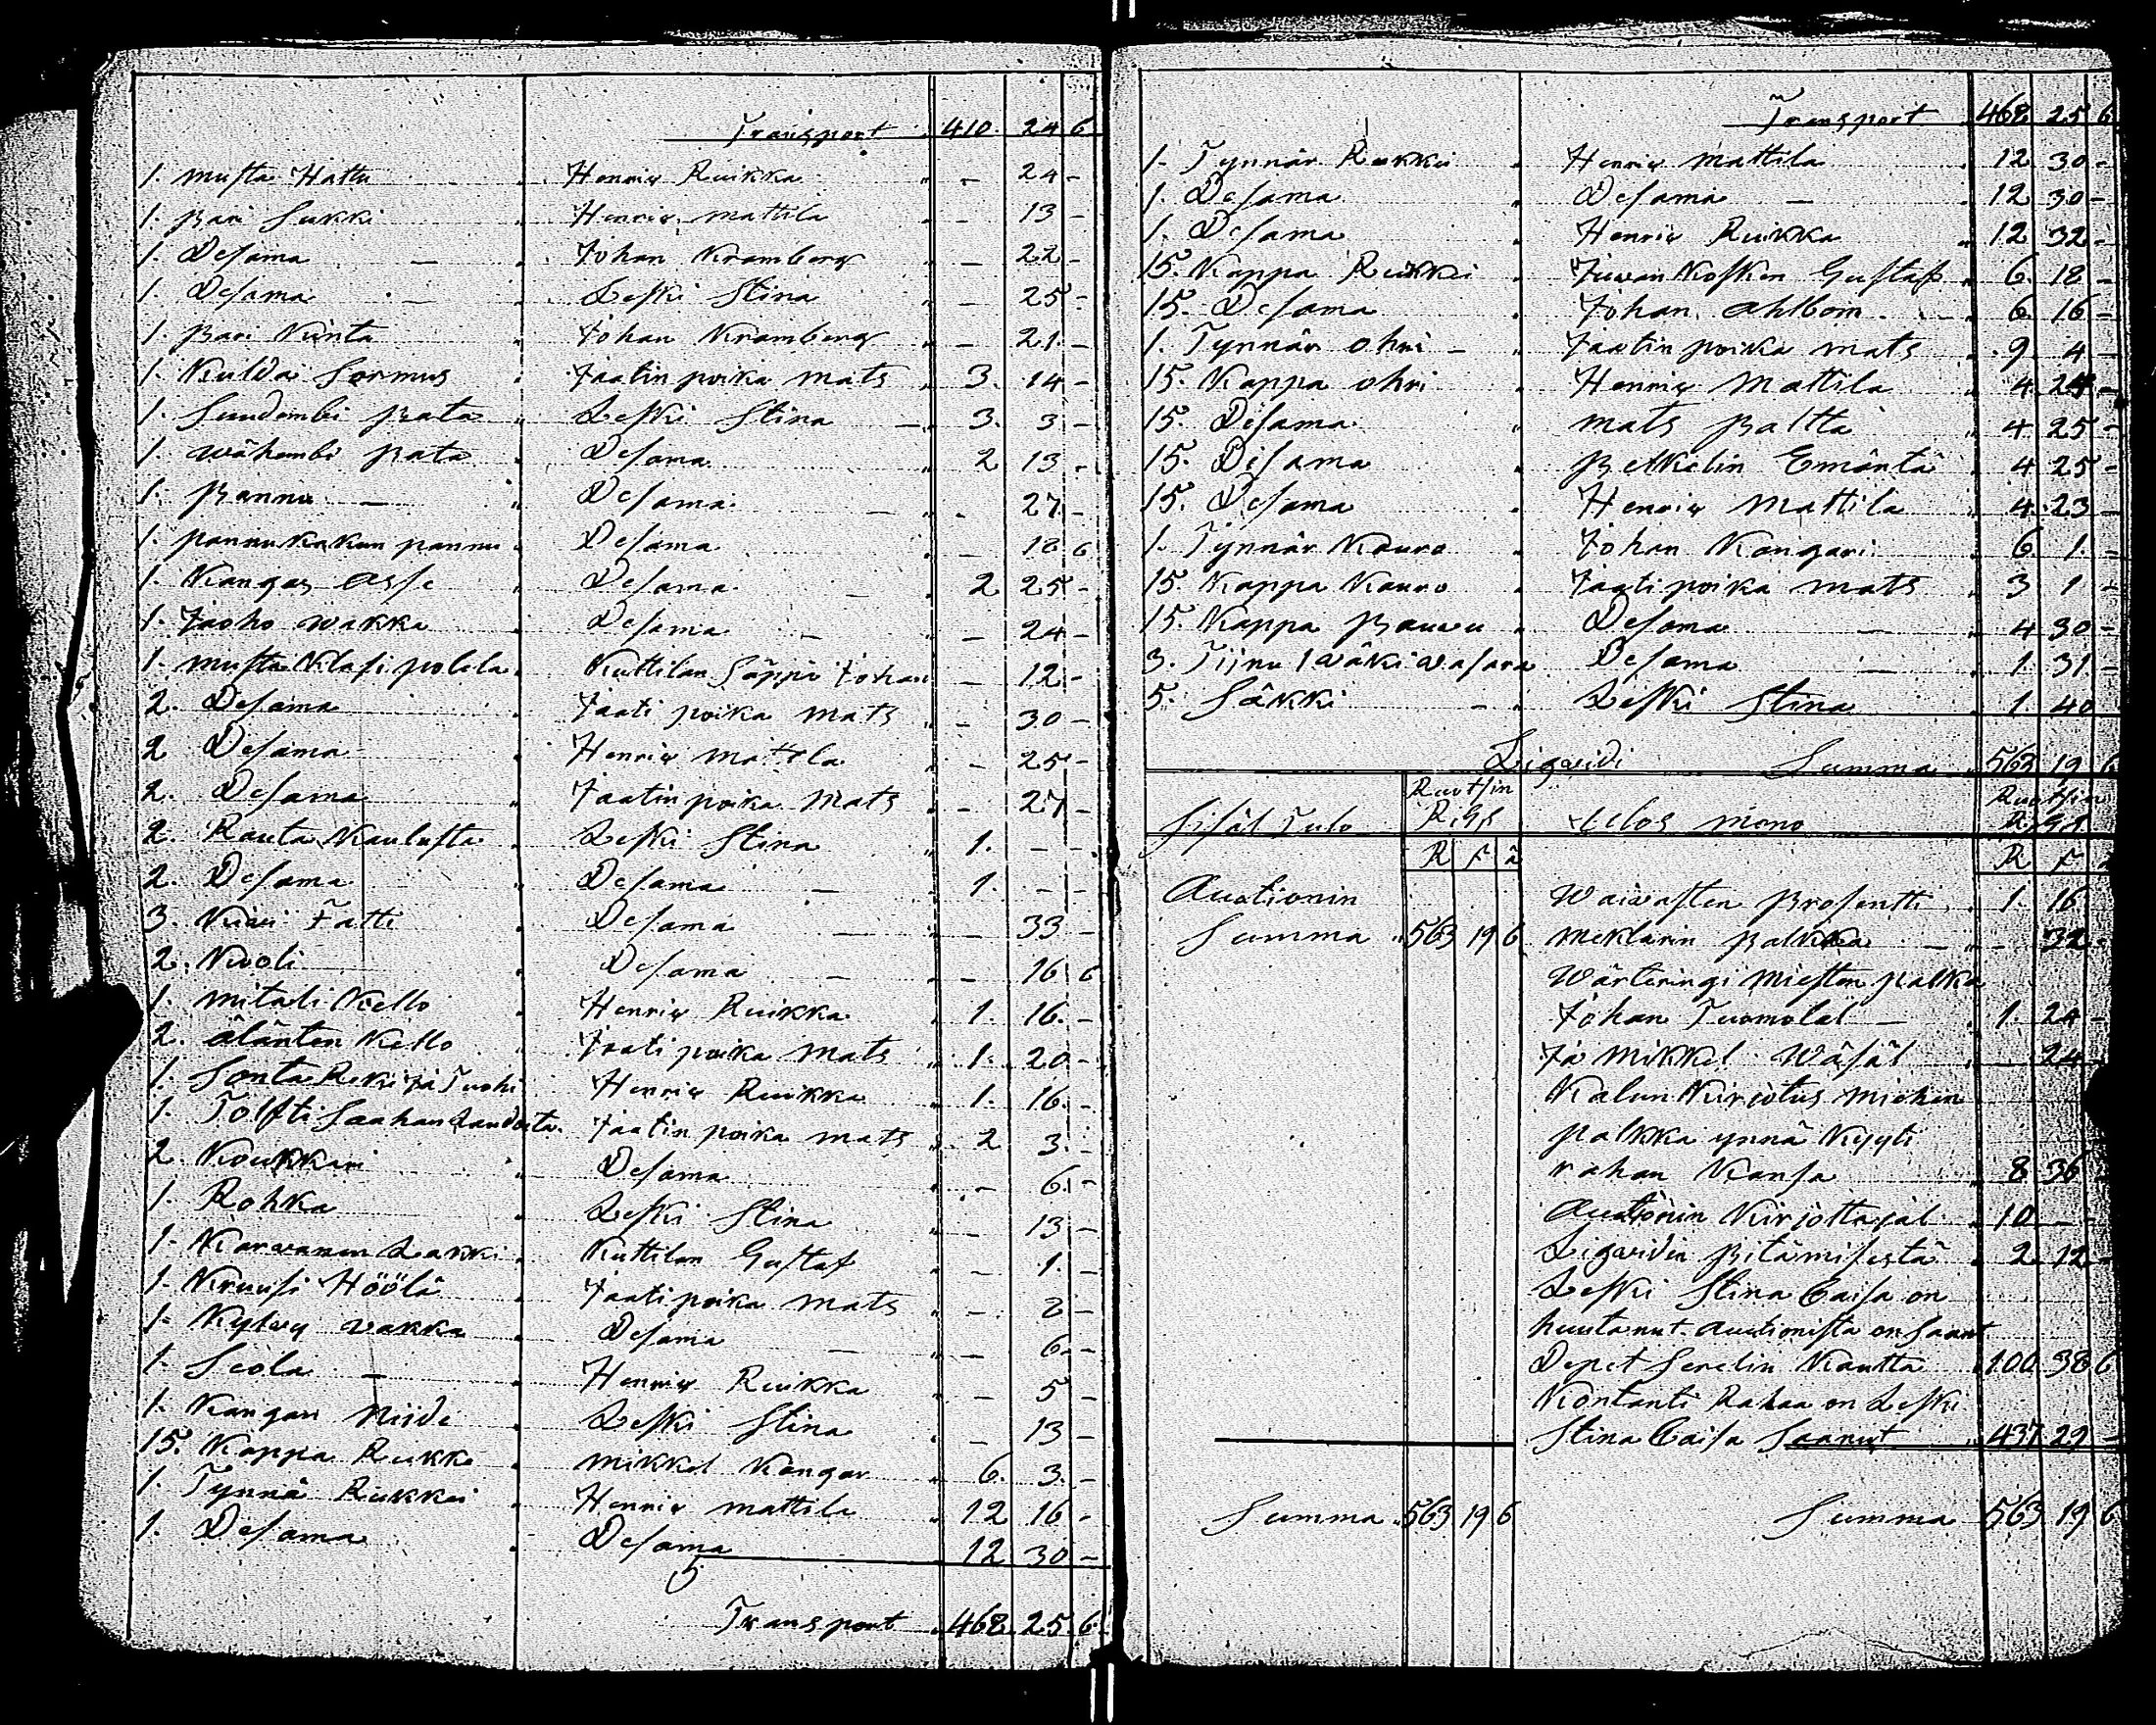 Transport 410. 24 6
1. musta Hattu Henric Ruikka - 24 -
1. pari Sukki Henric mattila - 13 -
1. Desama - Johan Kramberg - 22 -
1. Desama - Leski Stina - 25 -
1. pari Kinta Johan Kramberg - 21 -
1. Kulda Sormus Jaatin poika mats 3. 14 -
1. Suudembi pata Leski Stina 3. 3 -
1. wähembi pata Desama 2 13 -
1. pannu - Desama - 27 -
1. pannukakun pannu Desama - 18 6
1. Kangas Desama 2 25 -
1. Jaoho wakka Desama - 24 -
1. musta Klasi polela Kuttilan Säppi Johan - 12 -
2. Desama Jaati poika mats - 30 -
2 Desama Henric mattla - 25 -
2. Desama Jaatin poika mats - 27 -
2. Rauta Kaulusta Leski Stina 1. - -
2. Desama Desama 1. - -
3. Kiwi Fatti Desama - 33 -
2. Kuoli Desama - 16 6
1. mitali Kello Henric Ruikka 1. 16. -
2. älänten Kello Jaati poika mats 1. 20 -
1. Sonta Reki ja Tuohi Henric Ruikka 1. 16. -
1. Tolfti Saahan Laudoita Jaatin poika mats 2 3. -
2. Koukkari Desama - 6. -
1. Rohka Leski Stina - 13 -
1. Karwanen Lakki Kuttilan Gustaf - 1. -
1. Kruusi Höölä Jaati poika mats - 2 -
1. Kylwy wakka Desama - 6. -
1. Seola - Henric Ruikka - 5 -
1. Kangan Niide Leski Stina - 13 -
15. Kappa Rukki mikkel Kangar 6. 3. -
1. Tynnä Rukkei Henric mattila 12 16 -
1. Desama Desama 12 30 -
Transport 468. 25 6.
Transport 468 25 6
1. Tynnär Rukkei Henric mattila 12 30 -
1. Desama Desama - 12 30 -
1. Desama Henric Ruikka 12 32 -
15. Kappa Rukkei Juwan Kosken Gustaf 6. 18 -
15. Desama Johan Ahlbom 6 16 -
1. Tynnär ohri - Jaatin poika mats 9. 4 -
15. Kappa ohri Henric mattila 4. 24 -
15. Desama mats paltta 4 25 -
15. Desama petkelin Emäntä 4 25 -
15. Desama Henric mattila 4. 23 -
1. Tynnär Kaura Johan Kangari 6 1. -
15. Kappa Kauro Jaati poika mats 3 1 -
15. Kappa pauwu Desama 4 30 -
3. Tijnu 1 wäkiwasara Desama 1. 31 -
5. Säkki - Leski Stina 1 40
Ligwidi Summa 563 19 6
Ruotsin Ruotsin
Sisäl Tulo R.gs Ulos meno R.gs
R F ä R F
Auctionin Waiwasten prosentti 1. 16
Summa 563 19 6 meklarin palkka - - 32 -
Wärteringi miesten palka
Johan Tuomolal - 1. 24 -
Ja mikkel Wäsäl - 24 -
Kalun Kirjotus miehen
palkka ynnä Kyyti
rahan Kansa 8 36
Auctionin Kirjottajal 10 - -
Ligwidin pitämisestä 2 12 -
Leski Stina Caisa on
huutanut auctionista on saanut
Depet Serelin Kautta 100 38 6
Kontanti Rahaa on Leski
Stina Caisa Saanut 437 29 -
Summa 563 19 6 Summa 563 19 6